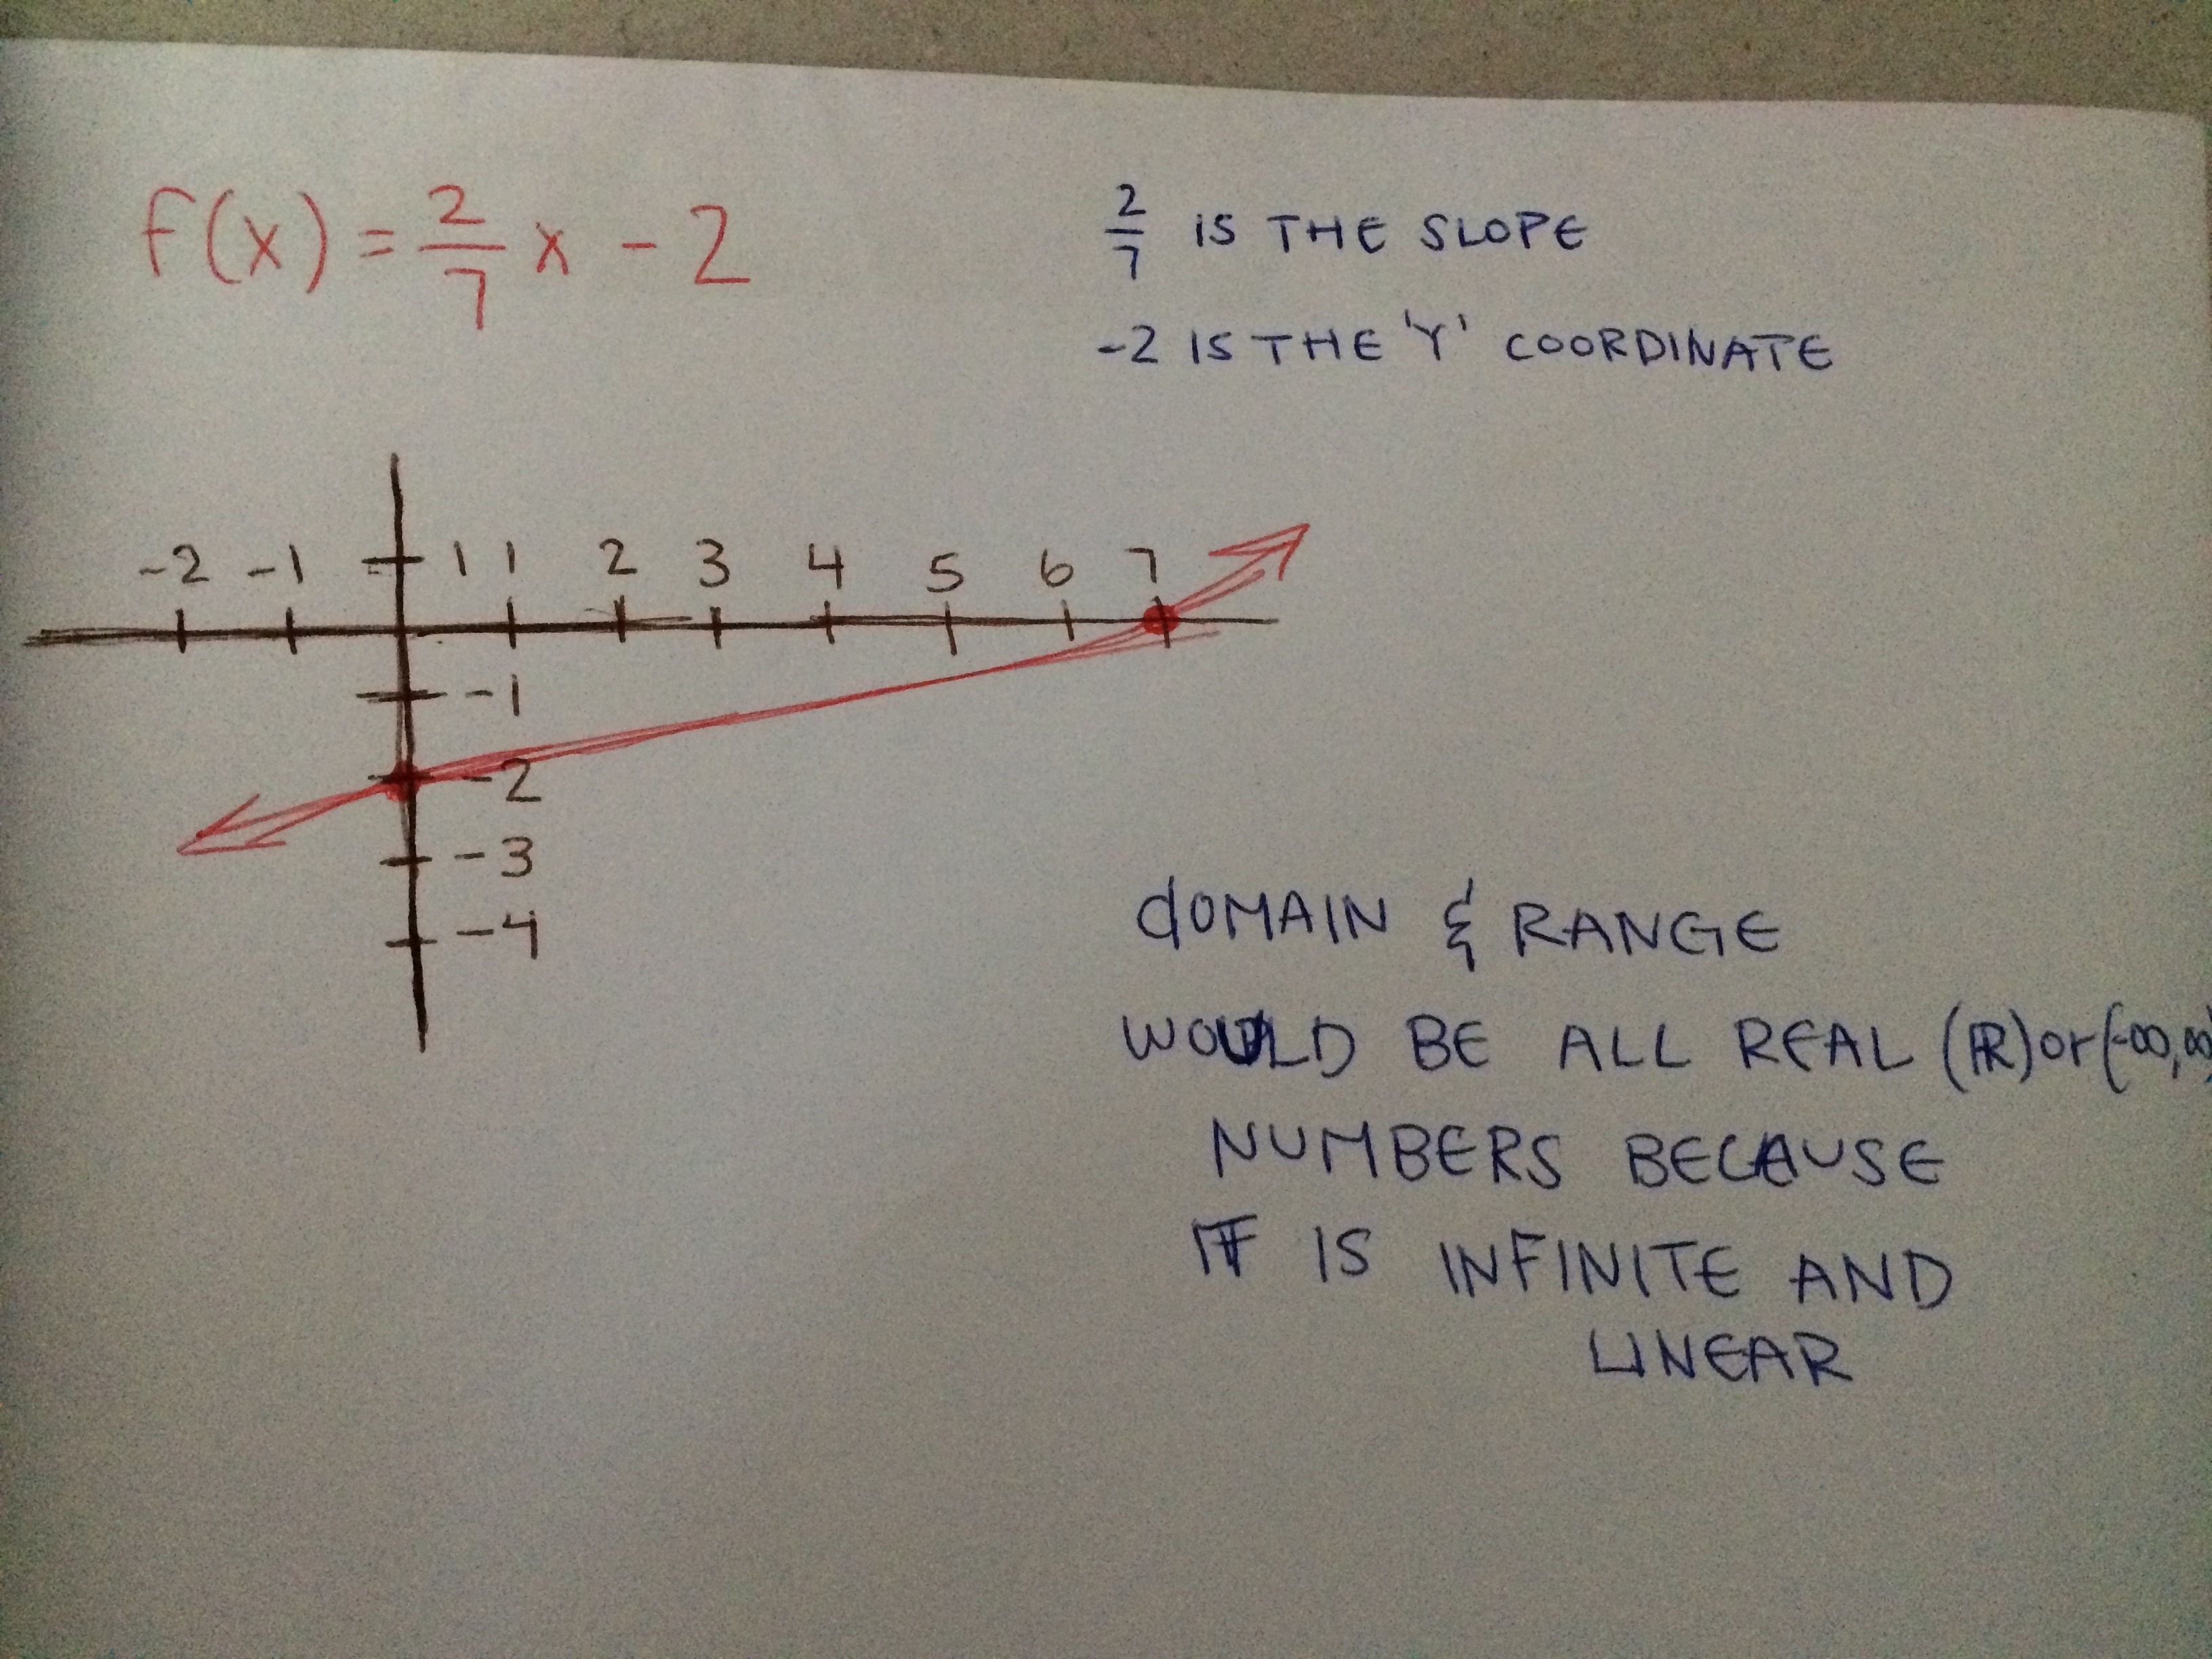 f(x) = 2/7 x - 2
2/7 is THE SLOPE
-2 IS THE 'Y' COORDINATE
-2 -1 1 1 2 3 4 5 6 7
-1
-2
-3
-4
dOMAIN & RANGE
WOULD BE ALL REAL (ℝ) or (-∞,∞)
NUMBERS BECAUSE
IT IS INFINITE AND
LINEAR